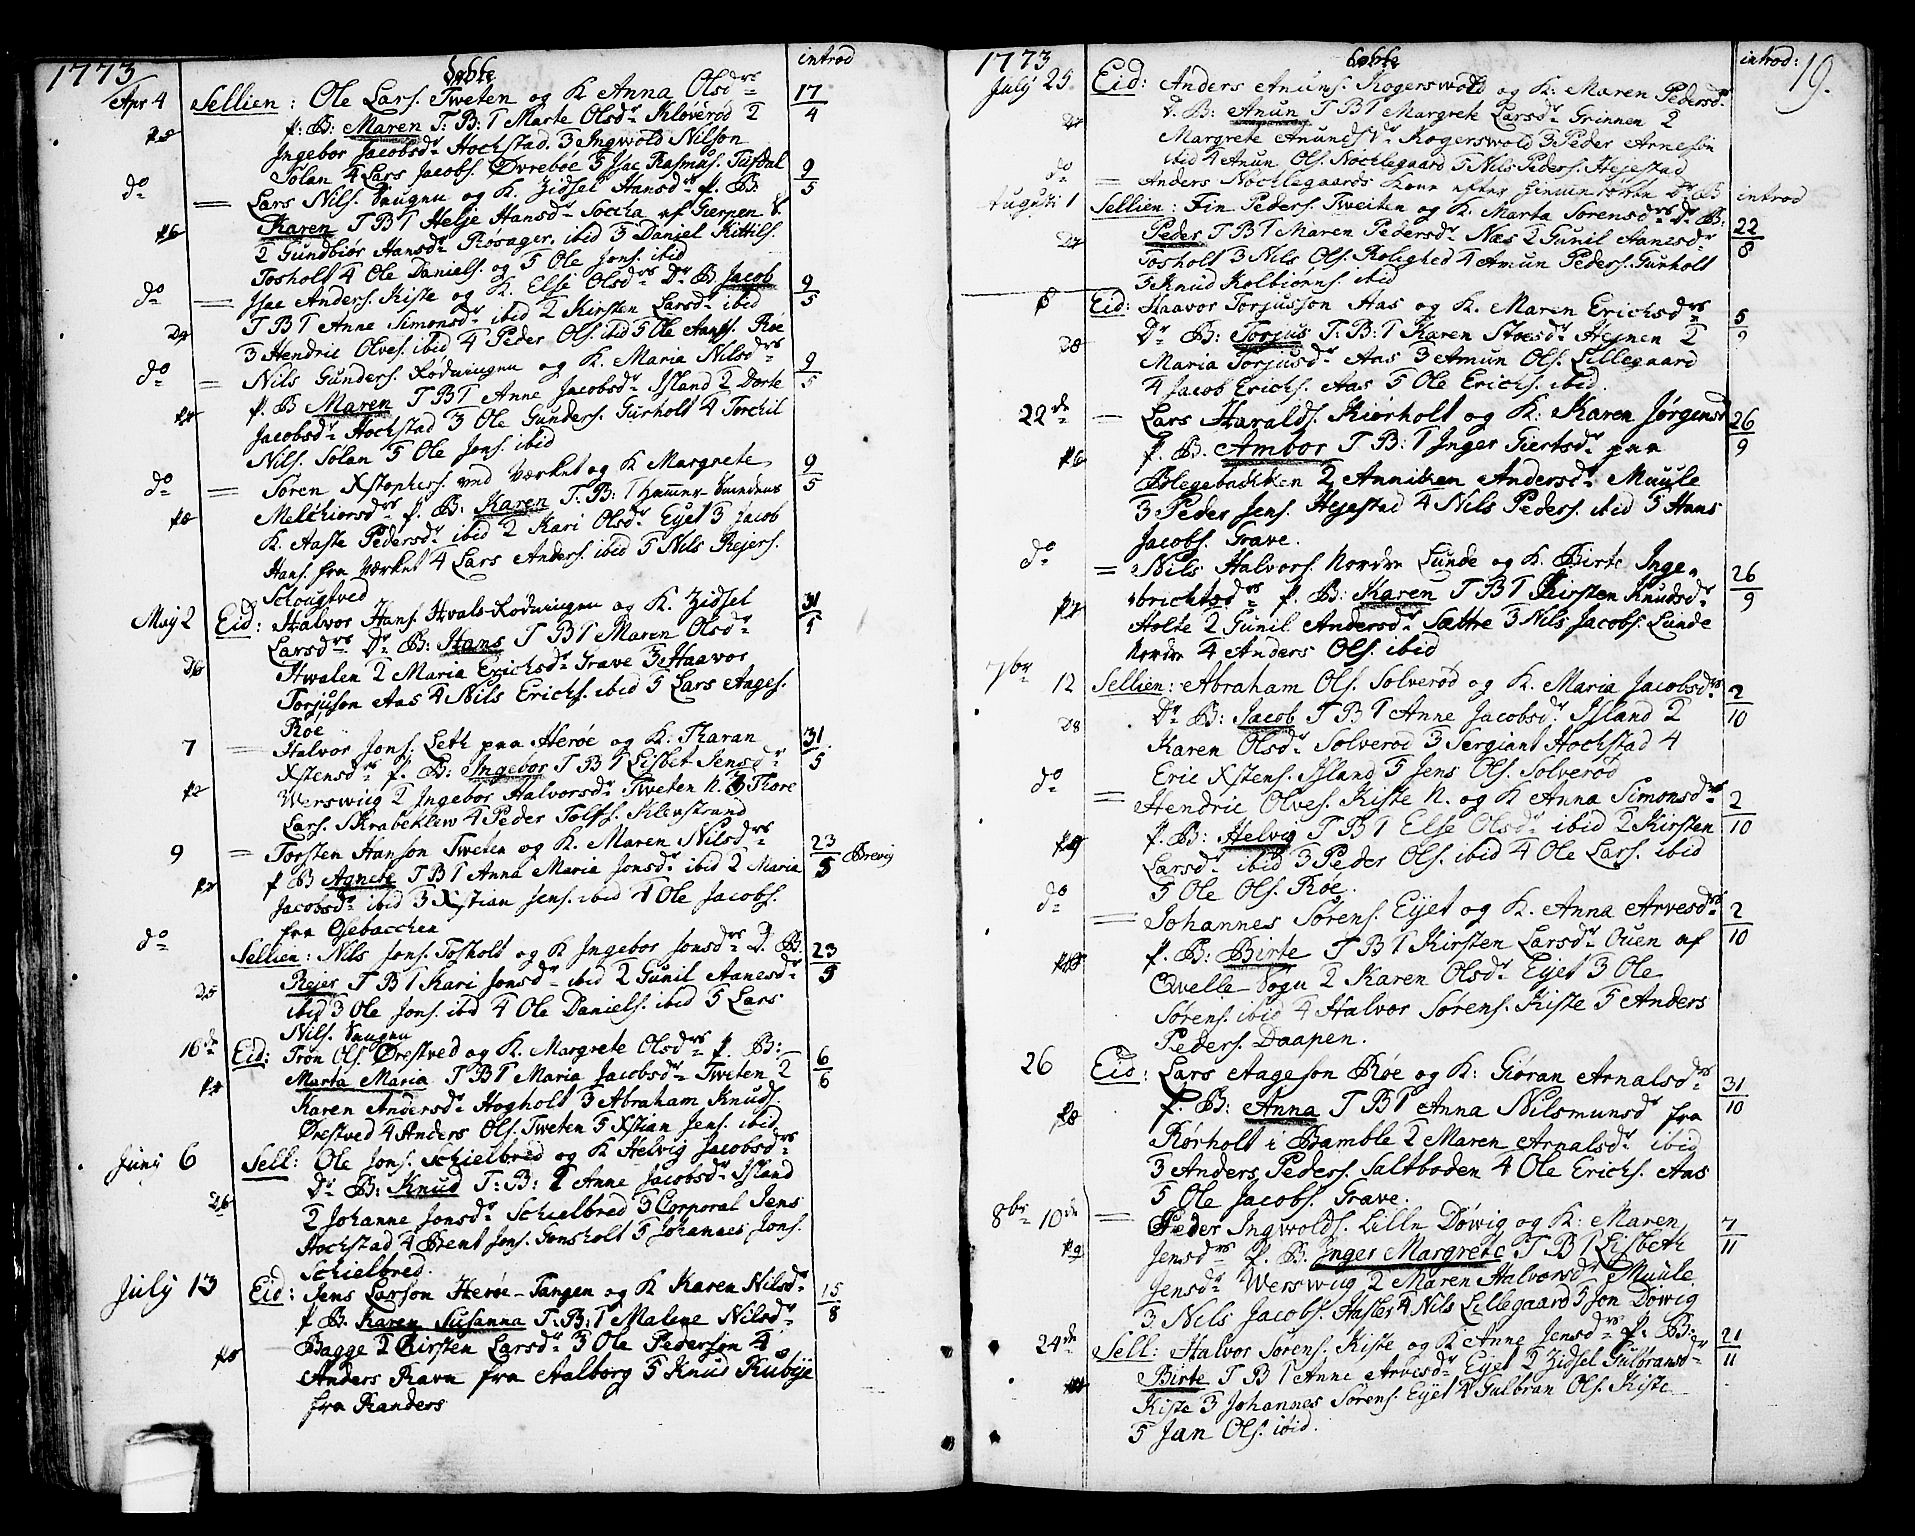 1773
Døbte
introd
Apr 4 Sellien: Ole Lars. Tweten og K Anna Olsdrs 17/4
p. B: Maren T: B: 1 Marte Olsdr Kløverød 2
Ingebor Jacobsdr Hochstad. 3 Ingwold Nilson
Solan 4 Lars Jacobs. Øvrebøe 5 Isac Rasmus. Tufdal
do = Lars Nils. Saugnu og K. Zidsel Hansdr p. B 9/5
Karen T B 1 Helje Hansdr Soccha af Gierpen S.
2 Gundbiør Hansdr Røsager. ibid 3 Daniel Kittils.
Tosholt 4 Ole Daniels. og 5 Ole Jons. ibid
do = Isac Anders. Kiste og K. Else Olsdrs Dr B Jacob 9/5
T B 1 Anne Simonsdr ibid 2 Kirsten Larsdr ibid
3 Hendric Olves. ibid 4 Peder Ols. ibid 5 Ole Aanss. Røe
do = Nils Gunders. Rødningen og K. Maria Nilsdrs 9/5
p. B Maren T B 1 Anne Jacobsdr Island 2 Dorte
Jacobsdr Hochstad 3 Ole Gunders. Gurholt 4 Torchil
Nils. Solan 5 Ole Jons. ibid
do = Søren Xstophers. ved Værket og K Margrete 9/5
Melchiorsdrs p. B: Karen T. B: 1 Hammer-Smedens
K. Aaste Pedersdr ibid 2 Kari Olsdr Eyet 3 Jacob
Hans. fra Værket 4 Lars Anders. ibid 5 Nils Rejers.
Schougtved
May 2 Eid: Halvor Hans. Hvals-Rødningen og K. Zidsel 31/5
Larsdrs Dr B: Hans T B 1 Maren Olsdr
Hwalen 2 Maria Erichsdr Grave 3 Haavor
Torjuson Aas 4 Nils Erichs. ibid 5 Lars Aages.
Røe
7 = Halvor Jons. Leth paa Herøe og K: Karan 31/5
Xstensdrs p. B: Ingebor T B 1 Lisbet Jensdr
Werswiig 2 Ingebor Halvorsdr Tweten N. 3 Thore
Lars. Skrabeklew 4 Peder Tolfs. Klevstrand
9 = Torsten Hanson Tweten og K. Maren Nilsdrs 23/5 Brevig
p B Agnete T B 1 Anna Maria Jonsdr ibid 2 Maria
Jacobsdr ibid 3 Xstian Jens. ibid 4 Ole Jacobs.
fra Egebacchen
do Sellien: Nils Jons. Tosholt og K Ingebor Jonsdrs D. B. 23/5
Rejer T B 1 Kari Jonsdr ibid 2 Gunil Aanesdr
ibid 3 Ole Jons. ibd 4 Ole Daniels. ibid 5 Lars
Nils. Saugnu
16de Eid: Tron Ols. Ørestved og K. Margrete Olsdrs p. B: 6/6
Marta Maria T B 1 Maria Jacobsdr Tweten 2
Karen Andersdr Hogholt 3 Abraham Knuds.
Ørestved 4 Anders Ols. Tweten 5 Xstian Jens. ibid
Junj 6 Sell: Ole Jons. Schielbred og K Helvig Jacobsdrs
Dr B: Knud T: B: 1 Anne Jacobsdr Island
2 Johanne Jonsdr Schielbred 3 Corporal Jens
Hochstad 4 Brent Jons. Gonsholt 5 Johannes Jons.
Schielbred.
July 13 Eid: Jens Larson Herøe-Tangen og K Karen Nilsdr 15/8
p B. Karen Susanna T: B: 1 Malene Nilsdr
Bagge 2 Kirsten Larsdr 3 Ole Pederson 4
Anders Ravn fra Aalborg 5 Knud Rubye
fra Randers
1773
Døbte
introd: 19.
July 25 Eid: Anders Anuns. Rogerswold og K. Maren Pedersdr.
D. B: Anun T B 1 Margrete Larsdr Grinnen 2
Margrete Anundsdr Rogerswold 3 Peder Arneson
ibid 4 Anun Ols. Nochlegaard 5 Nils Peders. Hejestad
do = Anders Nochlegaards Kone efter
introd
Augusti 1 Sellien: Fin Peders. Tweiten og K. Marta Sørensdrs Dr B: 22/8
Peder T B 1 Maren Pedersdr Næs 2 Gunil Aanesdr
Tosholt 3 Nils Ols. Rolighed 4 Amun Peders. Gurholt
5 Knud Kolbiørns. ibid
8 Eid: Haavor Torjusson Aas og K. Maren Erichsdrs 5/9
Dr B: Torjus T: B: 1 Karen Stoesdr Hejnen 2
Maria Torjusdr Aas 3 Amun Ols. Lillegaard
4 Jacob Erichs. Aas 5 Ole Erichs. ibid.
22de = Lars Haralds. Kiørholt og K. Karen Jørgensd 26/9
p. B: Ambor T. B: 1 Inger Giertsdr paa
Bolegebachken 2 Anniken Andersdr Muule
3 Peder Jens. Hejestad 4 Nils Peders. ibid 5 Hans
Jacobs. Grave.
do = Nils Halvors. Nordre Lunde og K. Birte Inge- 26/9
brichtsdrs p. B: Karen T B 1 Kirsten Knudsdr
Holte 2 Gunil Andersdr Sættre 3 Nils Jacobs. Lunde
Nordre 4 Anders Ols. ibid
7br 12 Sellien: Abraham Ols. Solverød og K. Maria Jacobsdrs 2/10
Dr B: Jacob T B 1 Anne Jacobsdr Island 2
Karen Olsdr Solverød 3 Sergiant Hochstad 4
Eric Xstens. Island 5 Jens Ols. Solverød
do = Hendric Olves. Kiste N. og K Anna Simonsdrs 2/10
p. B: Helvig T B 1 Else Olsdr ibid 2 Kirsten
Larsdr ibid 3 Peder Ols. ibid 4 Ole Lars. ibid
5 Ole Ols. Røe.
do = Johannes Sørens. Eyet og K. Anna Arvesdrs 2/10
p. B: Birte T B 1 Kirsten Larsdr Ouen af
Qvelle-Sogn 2 Karen Olsdr Eyet 3 Ole
Sørens. ibid 4 Halvor Sørens. Kiste 5 Anders
Peders. Daapen.
26 Eid: Lars Aageson Røe og K: Giøran Arnalsdrs 31/10
p. B: Anna T B 1 Anna Nilsmunsdr fra
Rørholt i Bamble 2 Maren Arnalsdr ibid
3 Anders Peders. Saltboden 4 Ole Erichs. Aas
5 Ole Jacobs. Grave.
8br 10de = Peder Ingwolds. Lille Døwig og K: Maren 7/11
Jensdrs p. B. Inger Margrete T B 1 Lisbeth
Jensdr Werswiig 2 Maren Halvorsdr Muule
3 Nils Jacobs. Hasler 4 Nils Lillegaard 5 Jon Døwig
24de Sell: Halvor Sørens. Kiste og K Anne Jensdrs p. B: 21/11
Birte T B 1 Anne Arvesdr Eyet 2 Zidsel Gulbransdr
Kiste 3 Johannes Sørens. Eyet 4 Gulbran Ols. Kiste
5 Jan Ols. ibid.